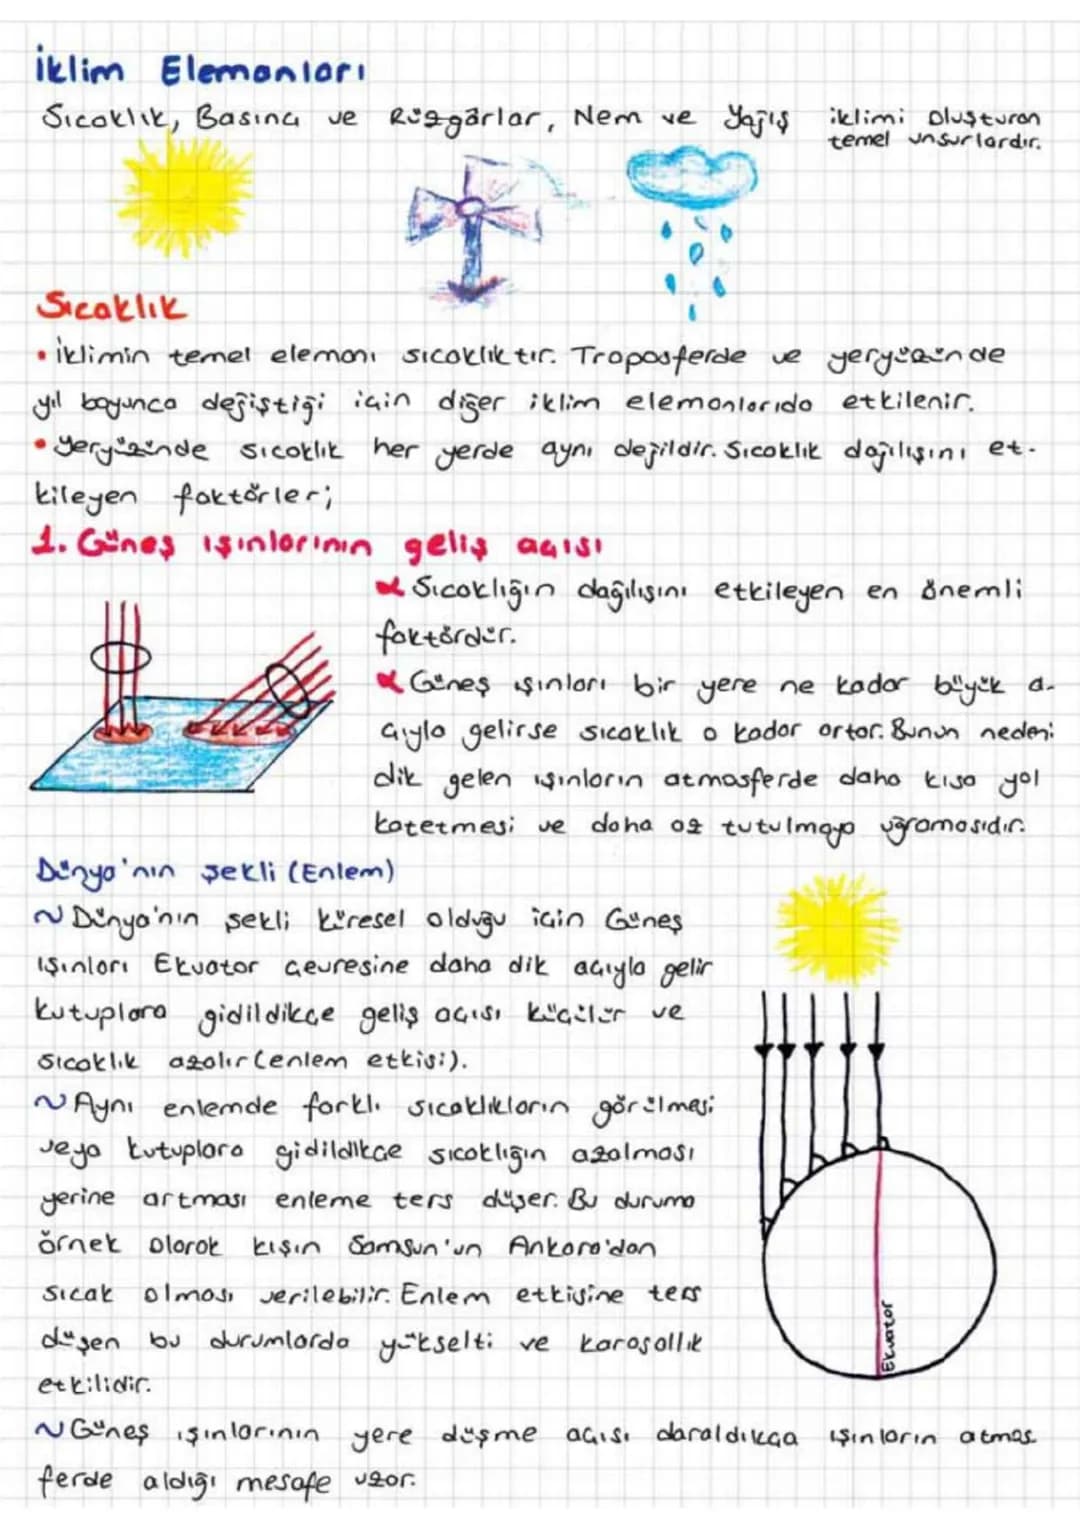 İklim Elemanları
Sıcaklık, Basınç ve Rüzgârlar, Nem ve Yağış iklimi oluşturan
temel unsurlardır.
Sıcaklık
• İklimin temel elemanı sıcaklıktır. Troposferde ve yeryüzünde
yıl boyunca değiştiği için diğer iklim elemanlarıda etkilenir.
• Yeryüzünde sıcaklık her yerde aynı değildir. Sıcaklık dağılışını et-
kileyen faktörler;
1. Güneş ışınlarının geliş açısı
Sıcaklığın dağılışını etkileyen en önemli
faktördür.
Güneş ışınları bir yere ne kadar büyük a-
çıyla gelirse sıcaklık o kadar artar. Bunun nedeni
dik gelen ışınların atmosferde daha kısa yol
katetmesi ve daha az tutulmaya uğramasıdır.
Dünya'nın şekli (Enlem)
~ Dünya'nın şekli küresel olduğu için Güneş
ışınları Ekvator çevresine daha dik açıyla gelir
kutuplara gidildikçe geliş açısı küçülür ve
sıcaklık azalır (enlem etkisi).
~ Aynı enlemde farklı sıcaklıkların görülmesi
veya kutuplara gidildikçe sıcaklığın azalması
yerine artması enleme ters düşer. Bu duruma
örnek olarak kışın Samsun'un Ankara'dan
sıcak olması verilebilir. Enlem etkisine ters
düşen bu durumlarda yükselti ve karasallık
etkilidir.
Ekvator
~ Güneş ışınlarının yere düşme açısı daraldıkça ışınların atmos
ferde aldığı mesafe uzar.